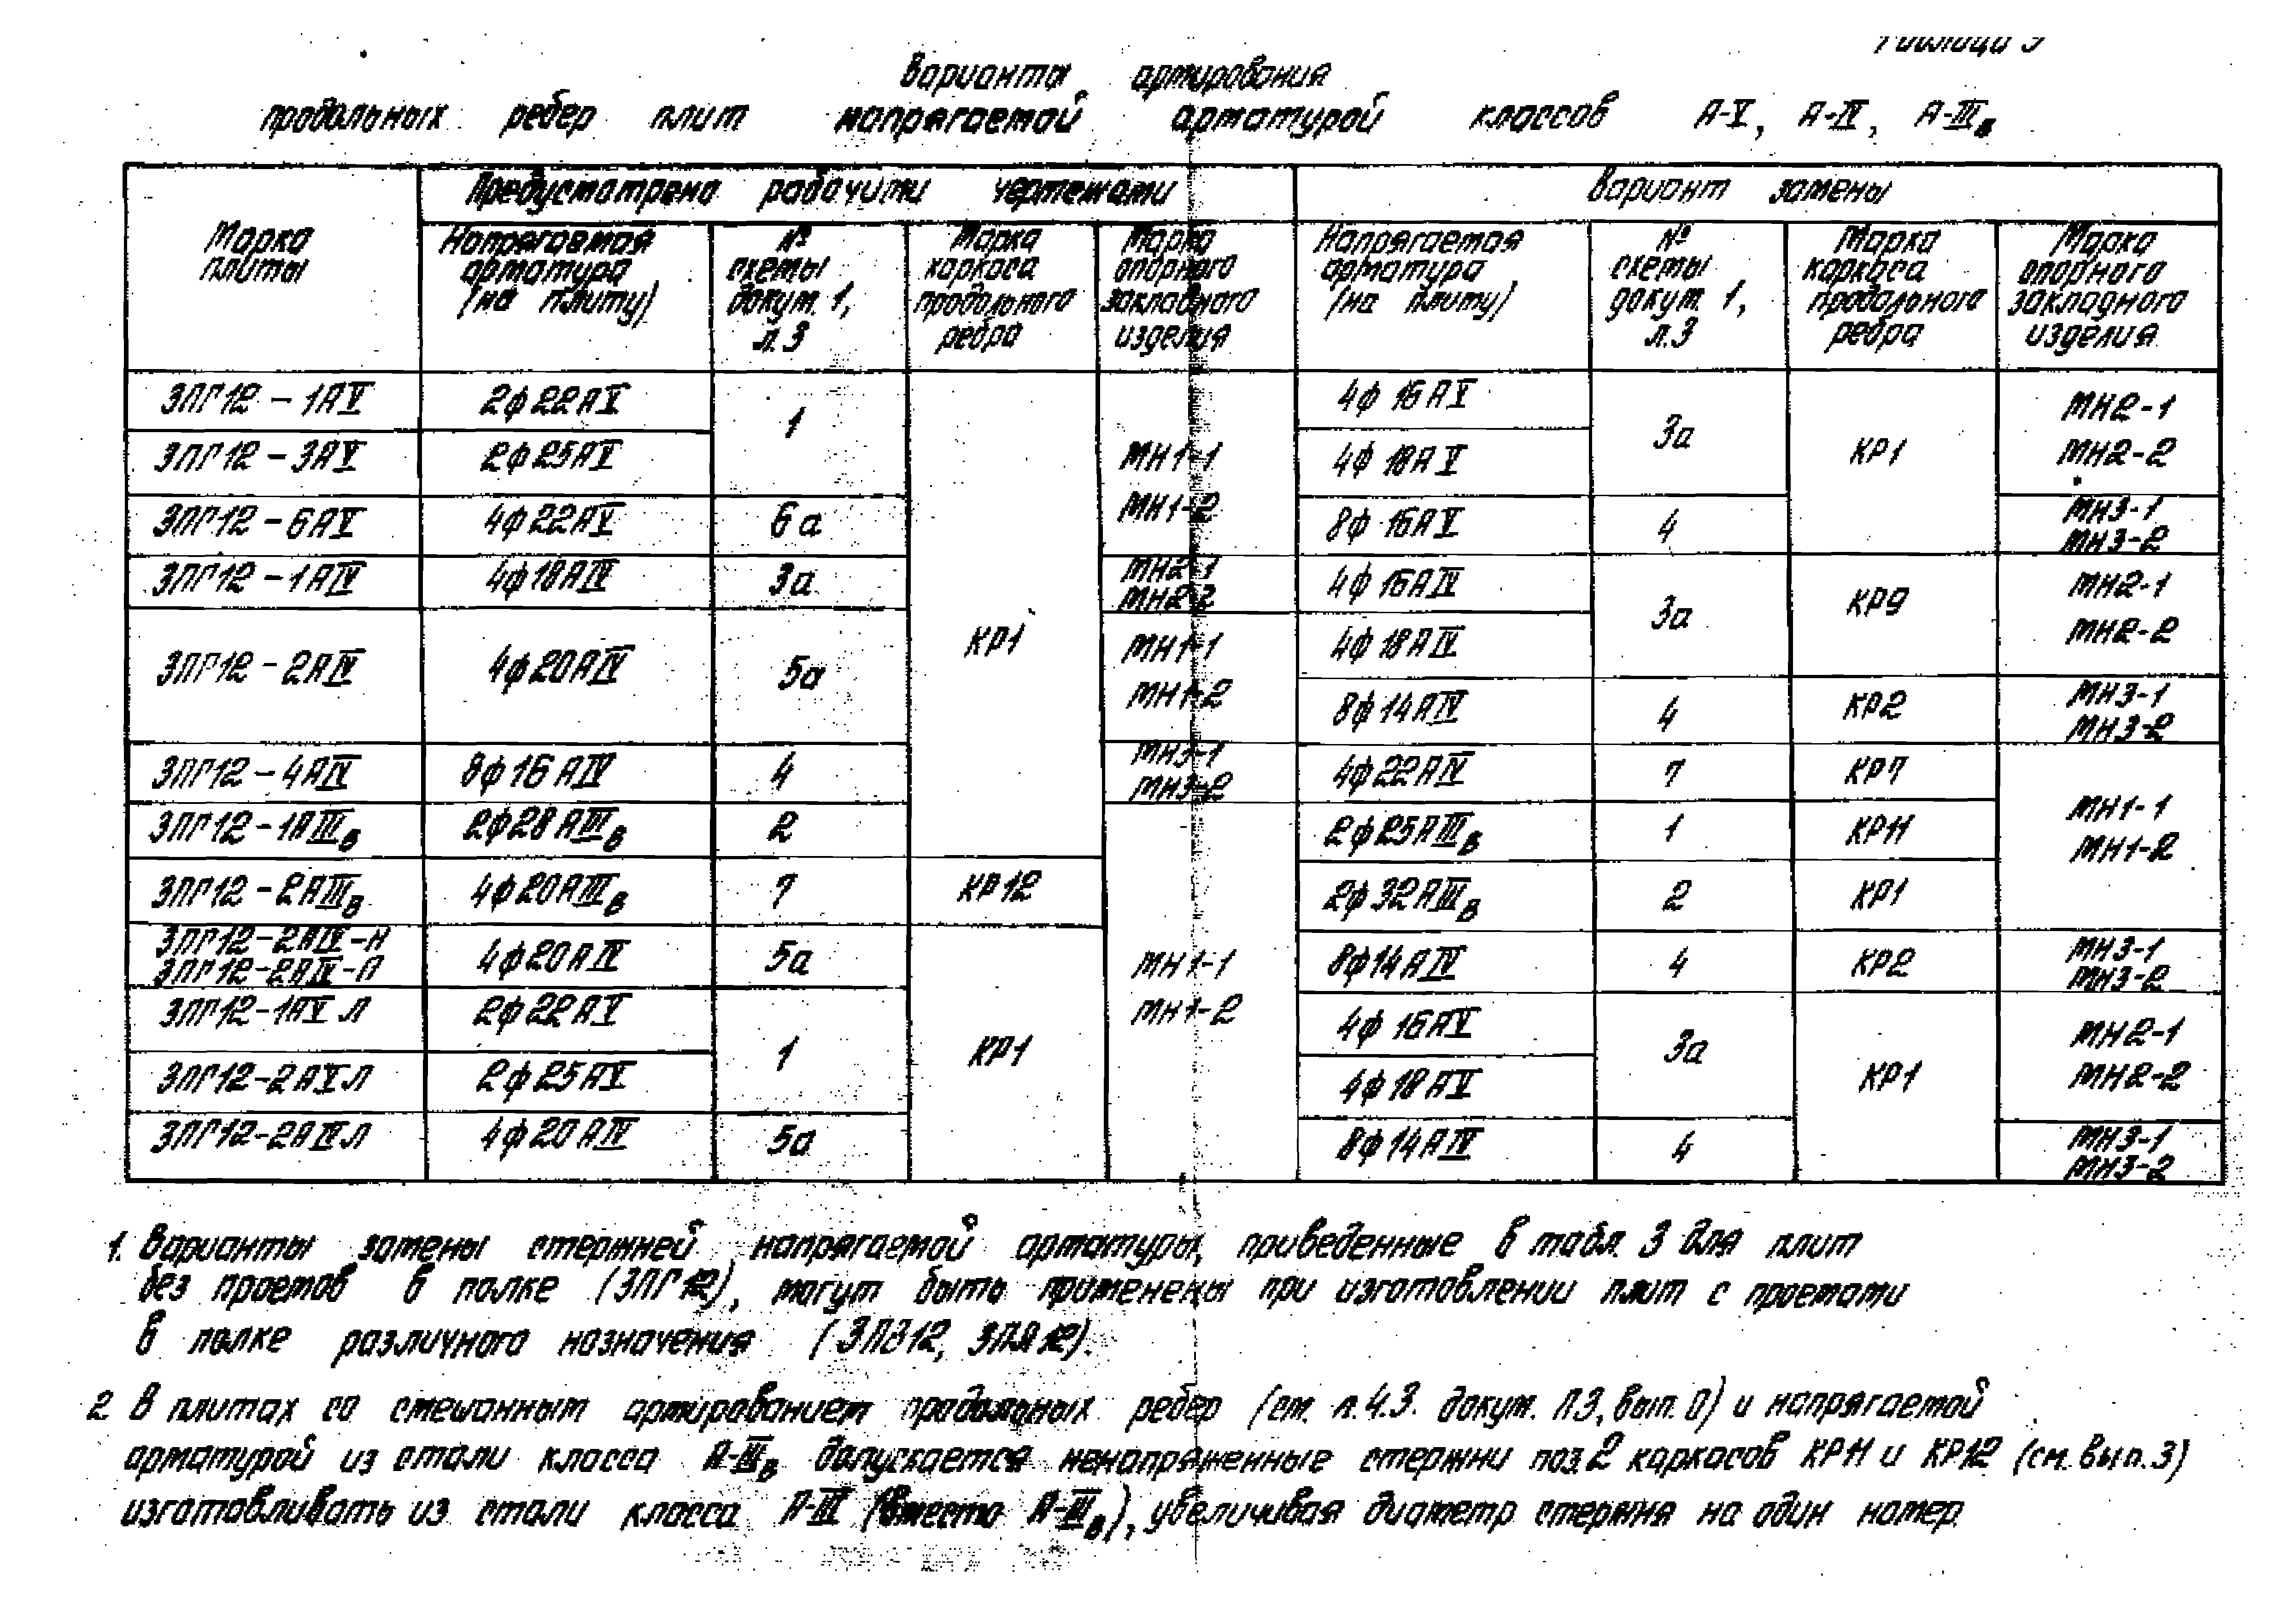 Таблица 3
Варианты армирования
продольных ребер плит напрягаемой арматурой классов А-V, А-IV, А-IIIв
Марка плиты
Предусмотрено рабочими чертежами
Вариант замены
Напрягаемая арматура (на плиту)
№ схемы докум. 1, л.3
Марка каркаса продольного ребра
Марка опорного закладного изделия
Напрягаемая арматура (на плиту)
№ схемы докум. 1, л.3
Марка каркаса продольного ребра
Марка опорного закладного изделия
3ПГ12-1АV 2ф22АV 1 КР1 МН1-1 МН1-2 4ф16АV 3а КР1 МН2-1 МН2-2
3ПГ12-3АV 2ф25АV 4ф18АV
3ПГ12-6АV 4ф22АV 6а 8ф16АV 4 МН3-1 МН3-2
3ПГ12-1АIV 4ф18АIV 3а МН2-1 МН2-2 4ф16АIV 3а КР9 МН2-1 МН2-2
3ПГ12-2АIV 4ф20АIV 5а МН1-1 МН1-2 4ф18АIV
8ф14АIV 4 КР2 МН3-1 МН3-2
3ПГ12-4АIV 8ф16АIV 4 МН3-1 МН3-2 4ф22АIV 7 КР7 МН1-1 МН1-2
3ПГ12-1АIIIв 2ф28АIIIв 2 2ф25АIIIв 1 КР11
3ПГ12-2АIIIв 4ф20АIIIв 7 КР12 2ф32АIIIв 2 КР1
3ПГ12-2АIV-Н
3ПГ12-2АIV-П 4ф20АIV 5а КР1 МН1-1 МН1-2 8ф14АIV 4 КР2 МН3-1 МН3-2
3ПГ12-1АV Л 2ф22АV 1 4ф16АV 3а КР1 МН2-1 МН2-2
3ПГ12-2АV Л 2ф25АV 4ф18АV
3ПГ12-2АIV Л 4ф20АIV 5а 8ф14АIV 4 МН3-1 МН3-2
1. Варианты замены стержней напрягаемой арматуры, приведенные в табл. 3 для плит
без проемов в полке (3ПГ12), могут быть применены при изготовлении плит с проемами
в полке различного назначения (3ПВ12, 3ПЛ12).
2 В плитах со смешанным армированием продольных ребер (см. п.4.3. докум. ПЗ, вып. 0) и напрягаемой
арматурой из стали класса А-IIIв допускается ненапряженные стержни поз.2 каркасов КР11 и КР12 (см. вып.3)
изготавливать из стали класса А-III (вместо А-IIIв), увеличивая диаметр стержня на один номер.